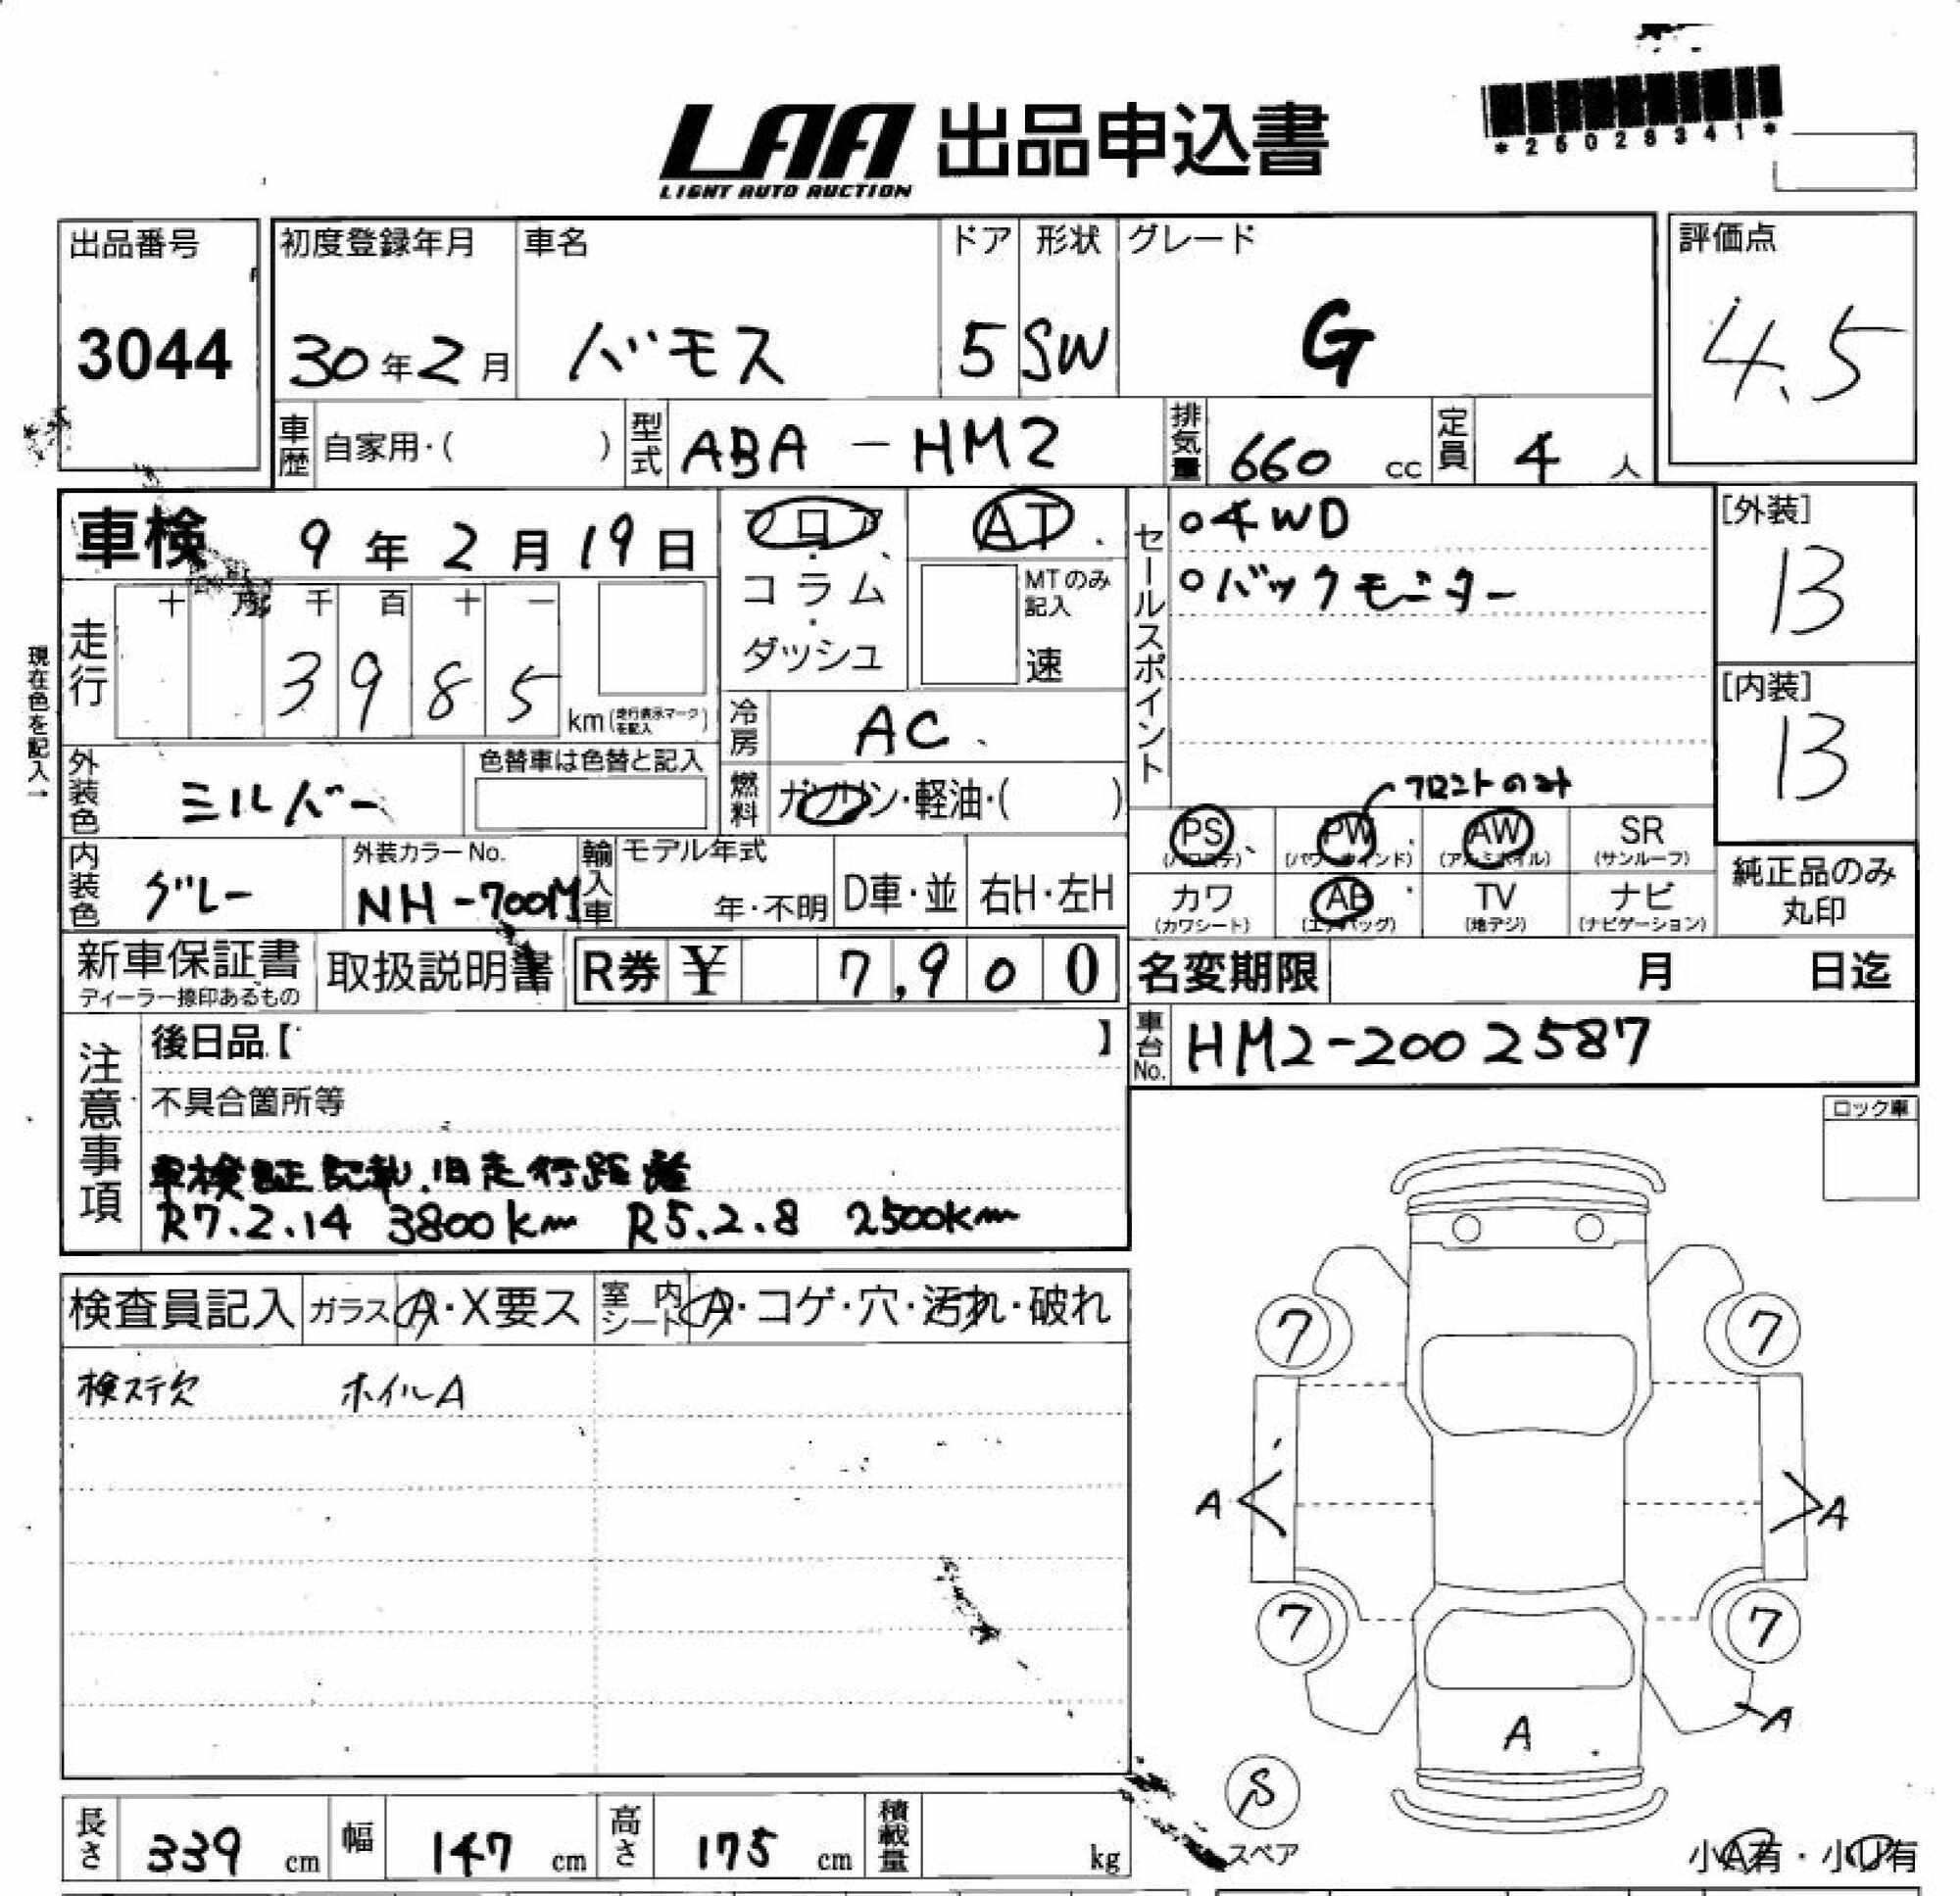 LAA 出品申込書
LIGHT AUTO AUCTION
*25028341*
出品番号
3044
初度登録年月
30年2月
車名
バモス
ドア
5
形状
SW
グレード
G
評価点
4.5
車歴 自家用・( )
型式 ABA-HM2
排気量 660 cc
定員 4 人
車検 9年2月19日
フロア・コラム・ダッシュ
AT
MTのみ記入
速
セールスポイント
○4WD
○バックモニター
[外装]
B
[内装]
B
現在色を記入→
走行
十 万 千 百 十 一
3985
km(走行表示マークを記入)
冷房 AC
外装色 シルバー
色替車は色替と記入
燃料 ガソリン・軽油・( )
フロントのみ
PS (パワステ)
PW (パワーウインド)
AW (アルミホイル)
SR (サンルーフ)
カワ (カワシート)
AB (エアバッグ)
TV (地デジ)
ナビ (ナビゲーション)
純正品のみ丸印
内装色 グレー
外装カラーNo.
NH-700M
輸入車
モデル年式
年・不明
D車・並
右H・左H
新車保証書
ディーラー捺印あるもの
取扱説明書
R券 ¥ 7,900
名変期限 月 日迄
車台No. HM2-2002587
注意事項
後日品【 】
不具合箇所等
車検証記載旧走行距離
R7.2.14 3800km R5.2.8 2500km
ロック車
検査員記入
ガラス A・X要ス
室内シート A・コゲ・穴・汚れ・破れ
検ステ欠 ホイルA
7 7
A A
7 7
A
A
S
スペア
小A有・小U有
長さ 339 cm
幅 147 cm
高さ 175 cm
積載量 kg